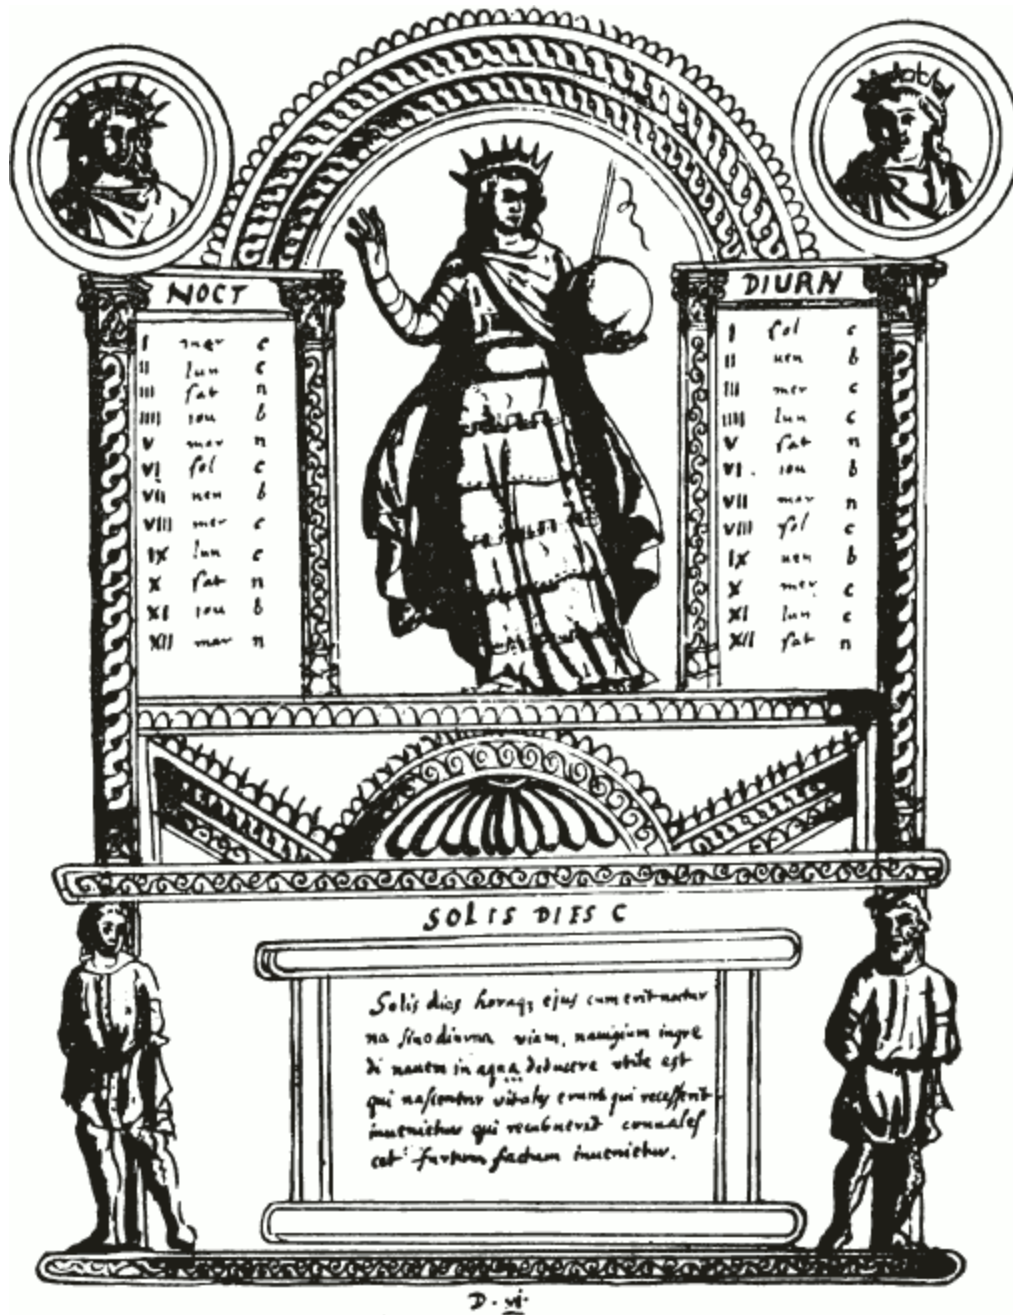 NOCT
I mer c
II lun c
III sat n
IIII iou b
V mar n
VI sol c
VII uen b
VIII mer c
IX lun c
X sat n
XI iou b
XII mar n
DIURN
I sol c
II uen b
III mer c
IIII lun c
V sat n
VI. iou b
VII mar n
VIII sol c
IX uen b
X mer c
XI lun c
XII sat n
SOLIS DIES C
Solis dies horaq; ejus cum erit noctur
na siuo diurna viam, nauigium ingre
di nauem in aqua deducere utile est
qui nascentur vitales erunt qui recesserit
inuenietur qui recubuerit conuales
cet furtum factum inuenietur.
D. vi.